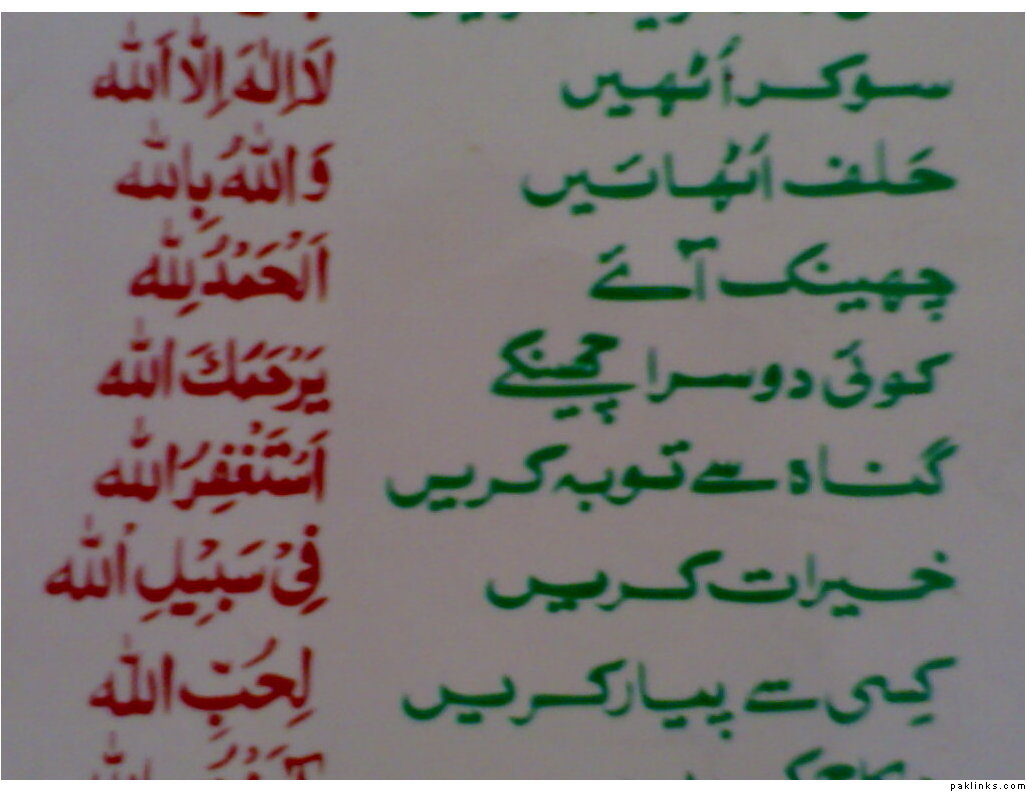 سو کر اُٹھیں لَا اِلٰهَ اِلَّا اَللّٰه
حَلف اُٹھائیں وَاللّٰهُ بِاللّٰه
چھینک آئے اَلْحَمْدُ لِلّٰه
کوئی دوسرا چھینکے يَرْحَمُكَ اللّٰه
گناہ سے توبہ کریں اَسْتَغْفِرُ اللّٰه
خیرات کریں فِیْ سَبِيْلِ اللّٰه
کِسی سے پیار کریں لِحُبِّ اللّٰه
paklinks.com